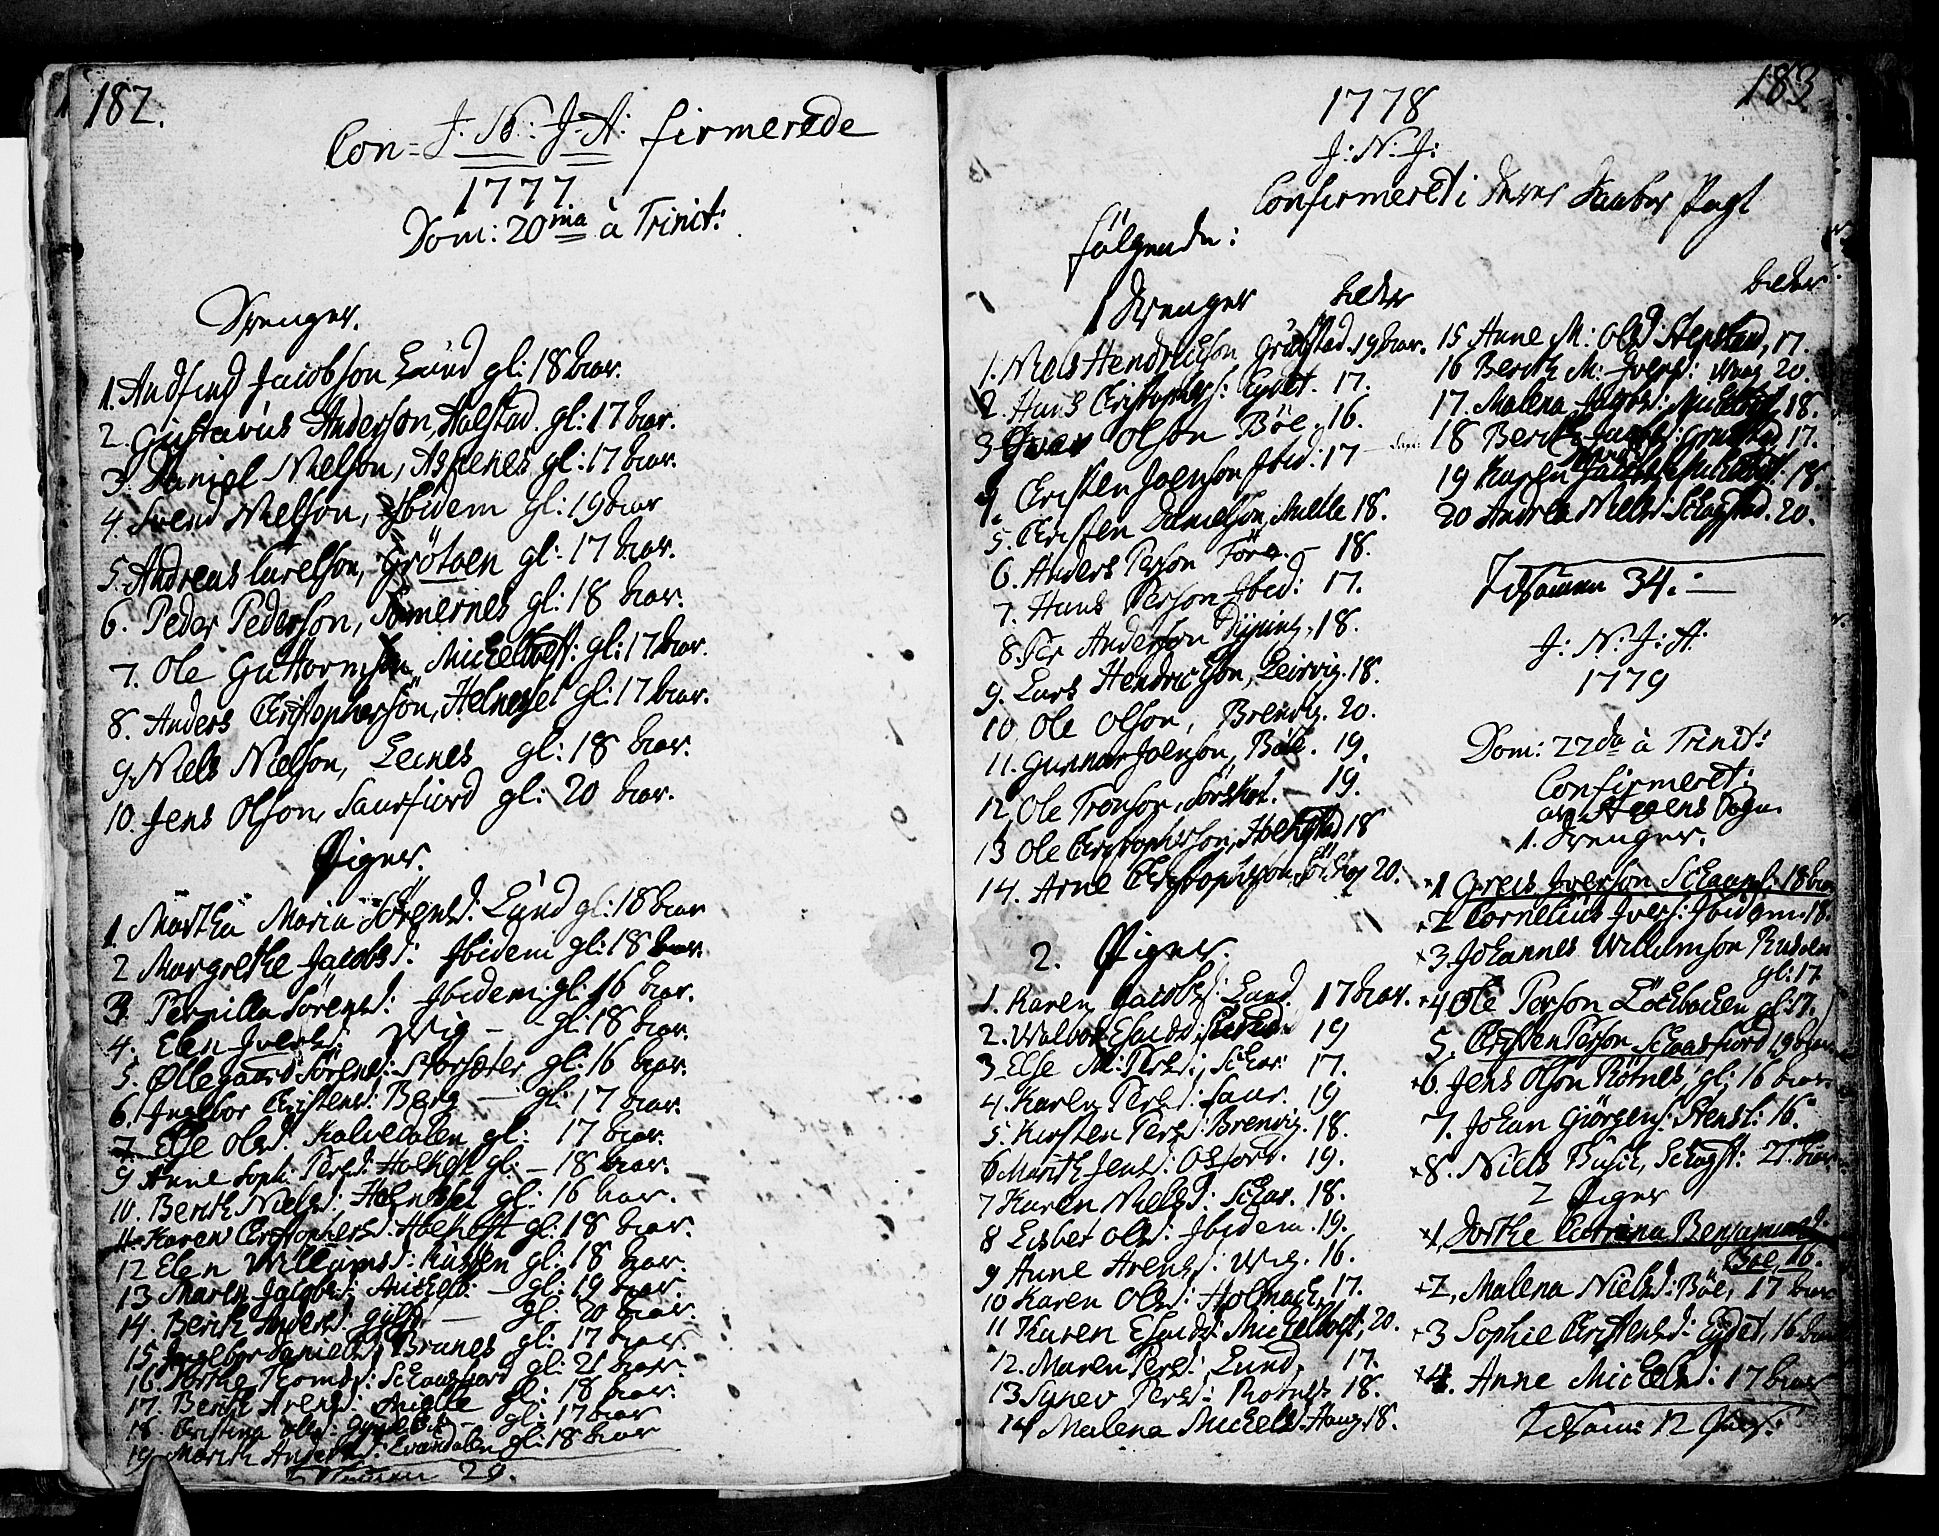 182.
Con= J: N: J: A: firmerede
1777.
Dom: 20ma à Trinit:
Drenger.
1. Andfind Jacobson Lund gl: 18 aar.
2. Gustavus Anderson, Halstad. gl: 17 aar.
3. Daniel Nielson, Aspenes gl: 17 aar.
4. Svend Nielson, Ibidem gl: 19 aar
5. Andreas Carelson, Grötöen gl: 17 aar.
6. Peder Pederson, Sommernes gl: 18 aar.
7. Ole Guttormson, Mickelbost: gl: 17 aar.
8. Anders Christopherson, Helnesset gl: 17 aar.
9. Niels Nielson, Leines gl: 18 aar.
10. Jens Olson, Saursfiord gl: 20 aar.
Piger.
1. Martha Maria Sörensd. Lund gl: 18 aar
2 Margrethe Jacobsd: Ibidem gl: 18 aar.
3. Pernilla Sörensd: Ibidem gl: 16 aar.
4. Elen Iversd: Wig - - gl: 18 aar.
5. Øllegaard Sörensd: Storsæter gl: 16 aar.
6. Ingebor Christensd: Berg - gl: 17 aar.
7. Else Olsd. Kalvedalen gl: 17 aar.
9 Anne Soph: Persd: Holkest gl: - 18 aar.
10. Berith Nielsd: Helnesset gl: 16 aar.
11. Karen Christophersd: Hoekest gl: 18 aar.
12 Elen Willumsd: Russen gl: 18 aar.
13 Maren Jacobsd: Mickelb: - gl: 19 aar.
14. Berith Andersd: - gl: 20 aar.
15. Ingebor Danielsd, Brunes gl: 17 aar.
16. Dorthe Thomsd: Schaasfiord gl: 21 aar.
17. Berith Arensd: Mielle gl: 18 aar.
18. Christina Olsd: - gl: 17 aar
19. Marith Andersd: Evendalen gl: 18 aar
29.
183
1778
J: N: J:
Confirmeret i deres Daabes Pagt
følgende:
1 Drenger alder
1. Niels Hendrichson Grösstad. 19 aar.
2. Hans Christophers: Eydet. 17.
3 Iver Olson Böe, 16.
4. Christen Joenson Ibid: 17
5. Christen Danielson, Mielle 18.
6. Anders Person Före - 18.
7. Hans Person Ibid: 17.
8. Per Anderson Dyping, 18.
9. Lars Hendrichson, Leirvig. 18.
10. Ole Olson, Brenvig. 20.
11. Gunnar Joenson, Böe. 19.
12. Ole Tronson, Sörskot. 19.
13 Ole Christopherson, 18
14. Arne Christopherson, Sörskot 20.
2. Piger.
1. Karen Jacobsd: Lund. 17 aar.
2. Walbor Esaiæd: 19
3. Else M: Persd:, Schar 17.
4. Karen Persd: Saur. 19
5. Kirsten Persd: Brenvig. 18.
6 Marith Jensd: Osford. 19.
7 Karen Nielsd: Schar. 18.
8 Lisbet Olsd: Ibidem. 19.
9 Anne Arensd: Wig. 16.
10 Karen Olsd: Holmack, 17.
11 Karen Esaiæd: Mickelbost, 20.
12. Maren Persd: Lund, 17.
13 Synev Persd: Rotnes 18.
14 Malena Michelsd: Haug 18.
alder
15 Anne M: Olsd: 17.
16 Berith M: Iversd: 20.
17. Malena Jacobsd: Mickelbost, 18.
18 Berith Jacobsd: Grösstad 17.
19 Karen Jacobsd: Mickelbost. 18.
20 Andrea Nielsd: Schagstad. 20.
Tilsamen 34. -
J: N: J: A:
1779
Dom: 22da à Trinit:
Confirmeret:
av Stegens Sogn.
1. Drenger.
+1 Greis Iverson Schaansl: 18 aar
+2 Cornelius Ivers: Ibidem. 18.
+3 Johannes Willumson Russen
gl: 17.
+4 Ole Person Löchbachen gl: 17.
5. Christen Person Schaasfiord 19 aar
+6. Jens Olson Rötnes, gl: 16 aar
7. Johan Giörgens: Stensl: 16.
+8. Niels Busch, Schagst: 21 aar
2 Piger
+1, Dorthe Catrina Benjaminsd.
Böe, 16.
+2, Malena Nielsd: Böe, 17 aar
+3 Sophie Christensd: Eydet, 16 aar
+4. Anne Michelsd: 17 aar
Tilsam: 12